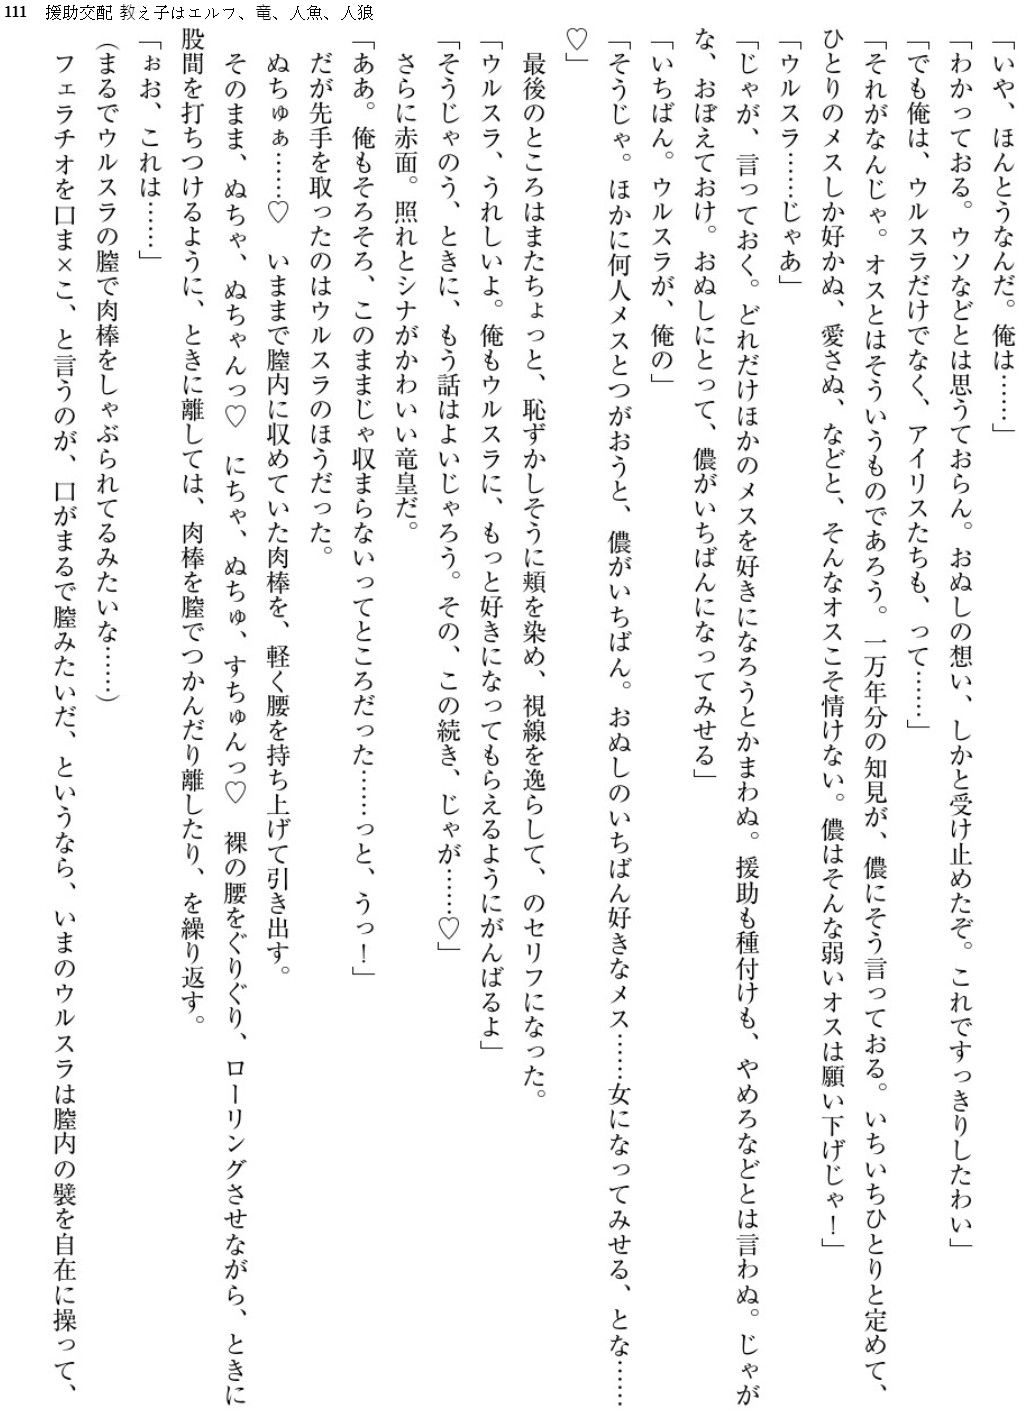 111 援助交配 教え子はエルフ、竜、人魚、人狼
「いや、ほんとうなんだ。俺は……」
「わかっておる。ウソなどとは思うておらん。おぬしの想い、しかと受け止めたぞ。これですっきりしたわい」
「でも俺は、ウルスラだけでなく、アイリスたちも、って……」
「それがなんじゃ。オスとはそういうものであろう。一万年分の知見が、儂にそう言っておる。いちいちひとりと定めて、
ひとりのメスしか好かぬ、愛さぬ、などと、そんなオスこそ情けない。儂はそんな弱いオスは願い下げじゃ！」
「ウルスラ……じゃあ」
「じゃが、言っておく。どれだけほかのメスを好きになろうとかまわぬ。援助も種付けも、やめろなどとは言わぬ。じゃが
な、おぼえておけ。おぬしにとって、儂がいちばんになってみせる」
「いちばん。ウルスラが、俺の」
「そうじゃ。ほかに何人メスとつがおうと、儂がいちばん。おぬしのいちばん好きなメス……女になってみせる、とな……
♡」
最後のところはまたちょっと、恥ずかしそうに頬を染め、視線を逸らして、のセリフになった。
「ウルスラ、うれしいよ。俺もウルスラに、もっと好きになってもらえるようにがんばるよ」
「そうじゃのう、ときに、もう話はよいじゃろう。その、この続き、じゃが……♡」
さらに赤面。照れとシナがかわいい竜皇だ。
「ああ。俺もそろそろ、このままじゃ収まらないってところだった……っと、うっ！」
だが先手を取ったのはウルスラのほうだった。
ぬちゅぁ……♡　いままで膣内に収めていた肉棒を、軽く腰を持ち上げて引き出す。
そのまま、ぬちゃ、ぬちゃんっ♡　にちゃ、ぬちゅ、すちゅんっ♡　裸の腰をぐりぐり、ローリングさせながら、ときに
股間を打ちつけるように、ときに離しては、肉棒を膣でつかんだり離したり、を繰り返す。
「ぉお、これは……」
（まるでウルスラの膣で肉棒をしゃぶられてるみたいな……）
フェラチオを口ま×こ、と言うのが、口がまるで膣みたいだ、というなら、いまのウルスラは膣内の襞を自在に操って、